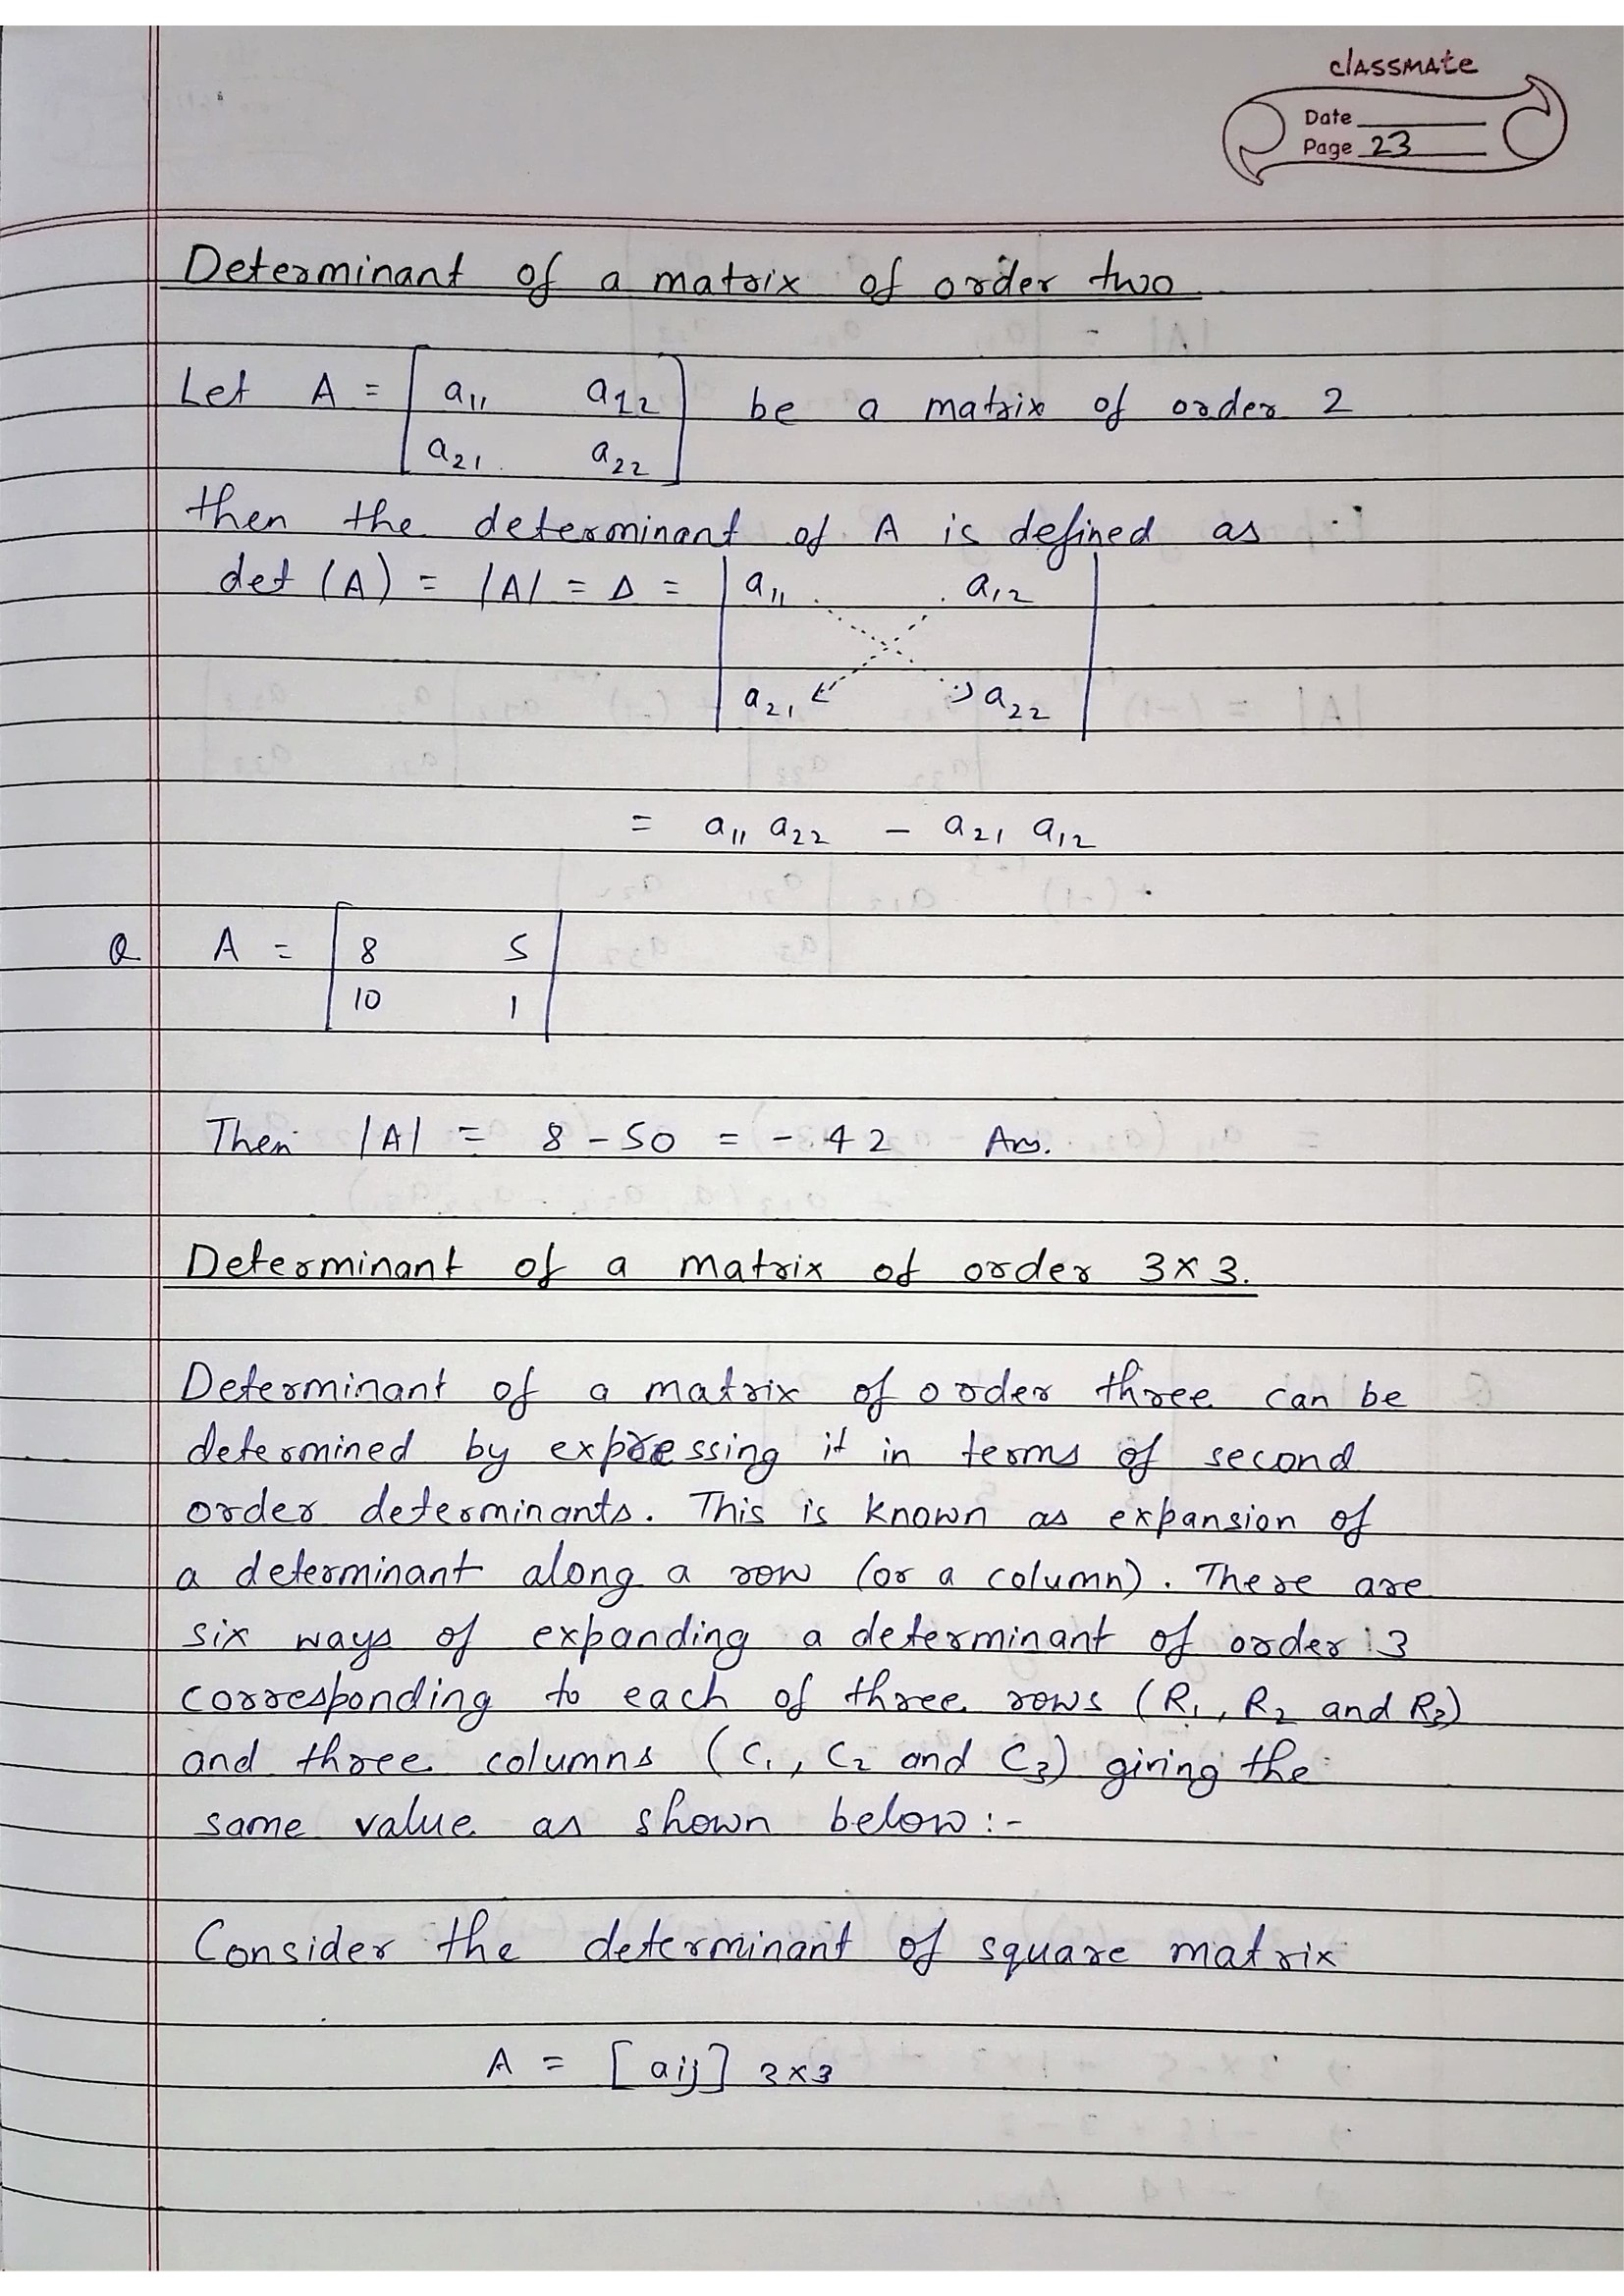 classmate
Date
Page 23
Determinant of a matrix of order two
Let A = [ a11 a12 ] be a matrix of order 2
[ a21 a22 ]
then the determinant of A is defined as
det (A) = |A| = Δ = | a11 a12 |
| a21 a22 |
= a11 a22 - a21 a12
Q A = | 8 5 |
| 10 1 |
Then |A| = 8 - 50 = - 42 Ans.
Determinant of a matrix of order 3×3.
Determinant of a matrix of order three can be
determined by expressing it in terms of second
order determinants. This is known as expansion of
a determinant along a row (or a column). There are
six ways of expanding a determinant of order 3
corresponding to each of three rows (R1, R2 and R3)
and three columns (C1, C2 and C3) giving the
same value as shown below :-
Consider the determinant of square matrix
A = [aij] 3×3